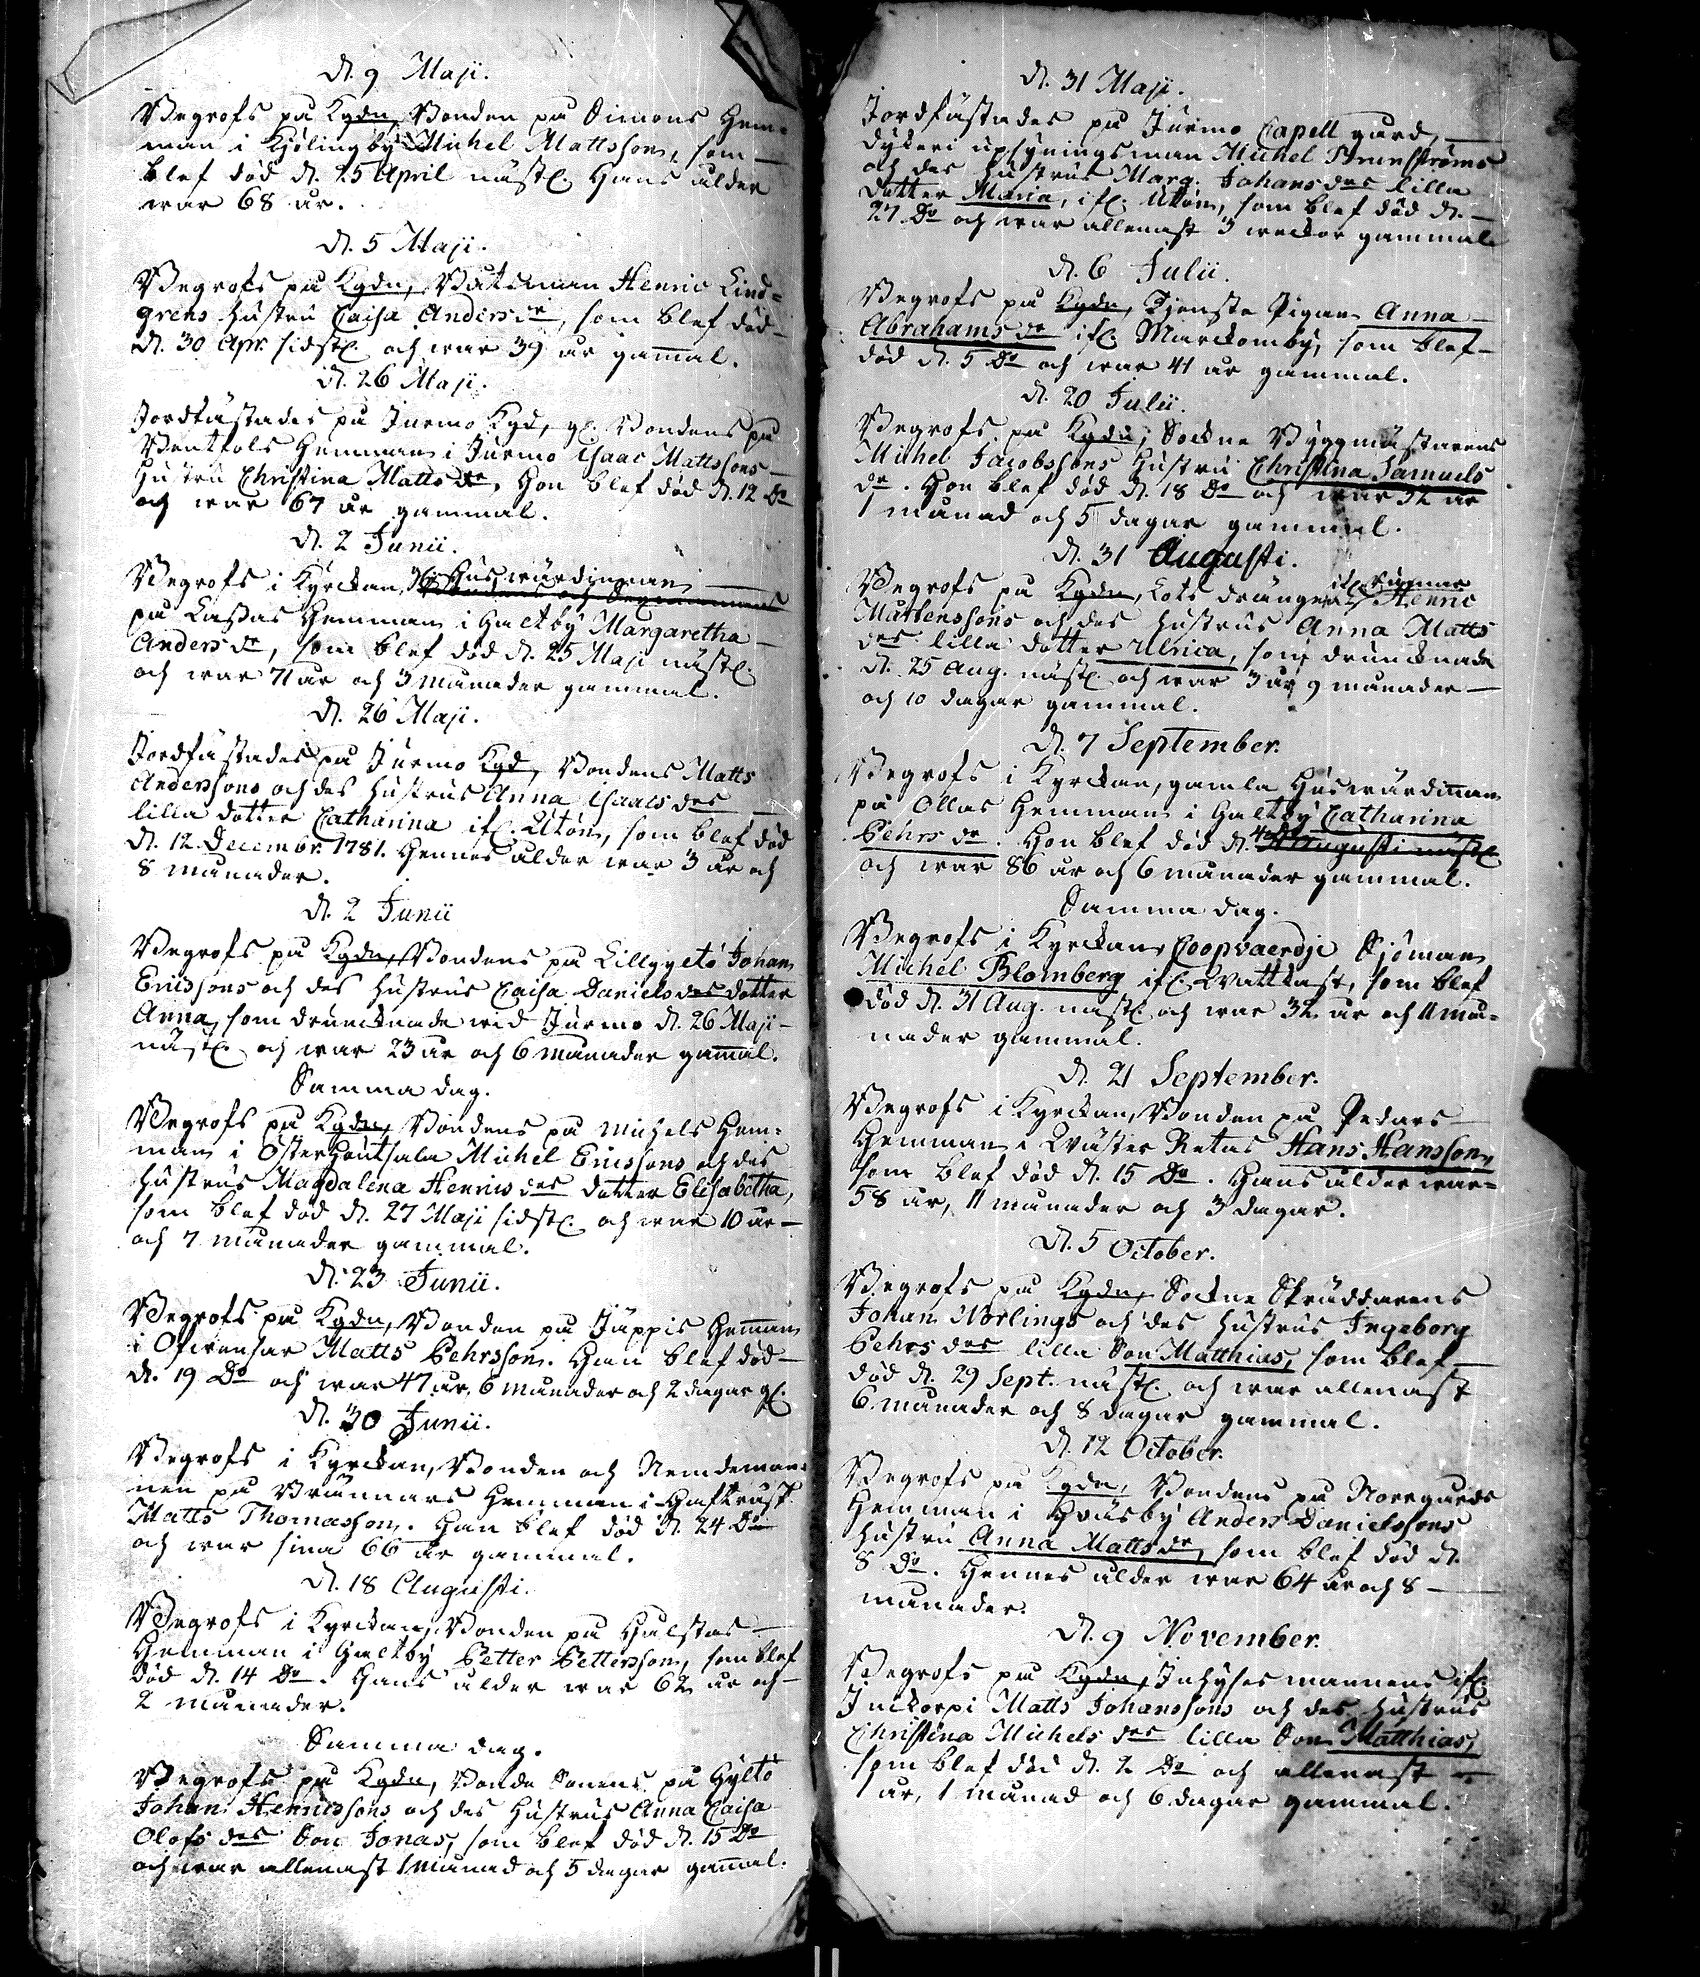 D. 9 Maji.
Begrofs på Kgdn, Bonden på Simons Hem-
man i Kjölingby Michel Mattsson, som
blef död d. 25 April nästl. Hans ålder
war 68 år.
D. 5 Maji.
Begrofs på Kgdn, Båtsman Henric Lind=
grens hustru Caisa Andersdr, som blef död
d. 30 Apr. sidstl. och war 39 år gammal.
D. 26 Maji.
Jordfästades på Jurmo Kgd, gl. Bondens på
Hemman i Jurmo Isaac Mattssons
Hustru Christina Mattsdr, Hon blef död d. 12 Do
och war 67 år gammal.
D. 2 Junii.
Begrofs i Kyrckan, gl. Huswärdinnan
på Lassas Hemman i Galtby Margaretha
Andersdr, som blef död d. 25 Maji nästl.
och war 71 år och 3 månader gammal.
D. 26 Maji.
Jordfästades på Jurmo Kgd, Bondens Matts
Anderssons och des hustrus Anna Isaacsdrs
lilla dotter Catharina ifl. Utön, som blef död
d. 12 Decembr. 1781. Hennes ålder war 3 år och
8 månader.
D. 2 Junii
Begrofs på Kgdn, Bondens på Lillgyltö Johan
Ericssons och des hustrus Caisa Danielsdrs dotter
Anna, som drunknade wid Jurmo d. 26 Maji
nästl. och war 23 år och 6 månader gammal.
Samma dag.
Begrofs på Kgdn, Bondens på Michels Hem=
man i Österhoutsala Michel Ericssons och des
hustrus Magdalena Henricsdrs dotter Elisabetha,
som blef död d. 27 Maji sidstl. och war 10 år
och 7 månader gammal.
D. 23 Junii.
Begrofs på Kgdn, Bonden på Jäppis Hemman
i Ofwensar Matts Pehrsson. Han blef död
d. 19 Do och war 47 år, 6 månader och 2 dagar gl.
D. 30 Junii.
Begrofs i Kyrckan, Bonden och Nemdeman=
nen på Brännars Hemman i
Matts Thomasson. Han blef död d. 24 Do
och war sina 66 år gammal.
D. 18 Augusti.
Begrofs i Kyrckan, Bonden på Halstas
Hemman i Galtby Petter Pettersson, som blef
död d. 14 Do. Hans ålder war 62 år och
2 månader.
Samma dag.
Begrofs på Kgdn, Bonde Sonens på Gyltö
Johan Henricssons och des hustrus Anna Caisa
Olofsdrs Son Jonas, som blef död d. 15 Do
och war allenast 1 månad och 5 dagar gammal.
D. 31 Maji.
Jordfästades på Jurmo Capell gård,
dykeri upsyningsman Michel Brunströms
och des hustrus Marg. Johansdrs lilla
dotter Maria, ifl. Utön, som blef död d.
27 Do och war allenast 3 weckor gammal
D. 6 Julii.
Begrofs på Kgdn, Tjenste Pigan Anna
Abrahamsdr ifl. Marckomby, som blef
död d. 5 Do och war 41 år gammal.
D. 20 Julii.
Begrofs på Kgdn, Sockne Byggmästarens
Michel Jacobssons hustru Christina Samuels
dr. Hon blef död d. 18 Do och war 32 år
1 månad och 5 dagar gammal.
D. 31 Augusti.
Begrofs på Kgdn, Lots drängen ifl. Henric
Mårtenssons och des hustrus Anna Matts
drs lilla dotter Ulrica, som drunknade
d. 25 Aug. nästl. och war 3 år 9 månader
och 10 dagar gammal.
D. 7 September.
Begrofs i Kyrckan, gamla Huswärdinnan
på Ollas Hemman i Galtby Catharina
Pehrsdr. Hon blef död d. 4
och war 86 år och 6 månader gammal.
Samma dag.
Begrofs i Kyrckan, Coopvaerdje Sjöman
Michel Blomberg ifl. Wattkast, som blef
död d. 31 Aug. nästl. och war 32 år och 11 må=
nader gammal.
D. 21 September.
Begrofs i Kyrckan, Bonden på Pedars
Hemman i Wäster Retais Hans Hansson,
som blef död d. 15 Do. Hans ålder war
58 år, 11 månader och 3 dagar.
D. 5 October.
Begrofs på Kgdn, Sockne Skräddarens
Johan Norlings och des hustrus Ingeborg
Pehrsdrs lilla Son Matthias, som blef
död d. 29 Sept. nästl. och war allenast
6 månader och 8 dagar gammal.
D. 12 October.
Begrofs på Kgdn, Bondens på Norrgårds
Hemman i Hwäsby Anders Danielssons
hustru Anna Mattsdr, som blef död d.
8 Do. Hennes ålder war 64 år och 8
månader.
D. 9 November.
Begrofs på Kgdn, Inhyses mannens ifl.
Matts Johanssons och des hustrus
Christina Michelsdrs lilla Son Matthias,
som blef död d. 2 Do och allenast
1 år, 1 månad och 6 dagar gammal.